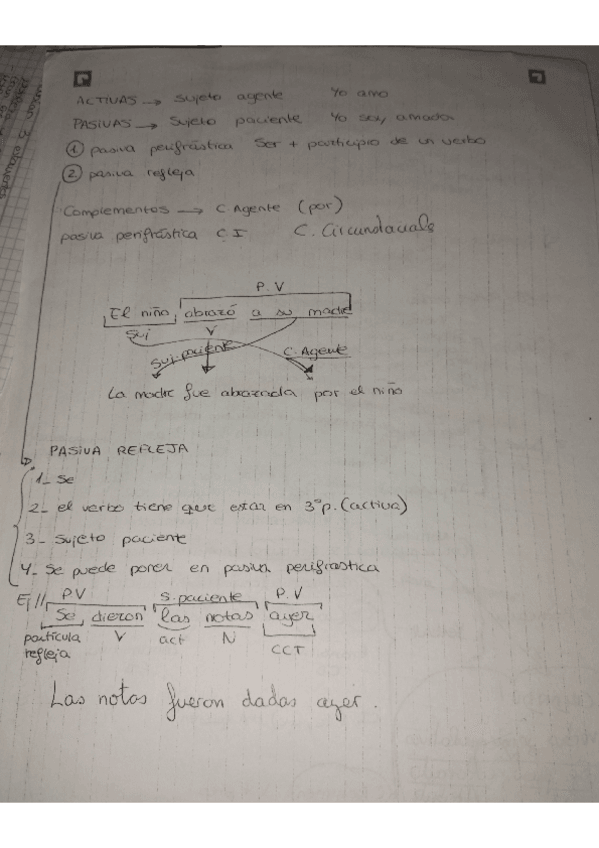 ACTIVAS → Sujeto agente Yo amo
PASIVAS → Sujeto paciente Yo soy amada
① pasiva perifrástica Ser + participio de un verbo
② pasiva refleja
Complementos → C Agente (por)
pasiva perifrástica C I C. Circunstacuals
P.V
El niño abrazó a su madre
Suj V
Suj.paciente C.Agente
La madre fue abrazada por el niño
PASIVA REFLEJA
1- Se
2- el verbo tiene que estar en 3ªp.(activa)
3- Sujeto paciente
4- Se puede poner en pasiva perifrastica
PV S.paciente P.V
Ej// Se dieron las notas ayer
partícula V act N
refleja CCT
Las notas fueron dadas ayer.